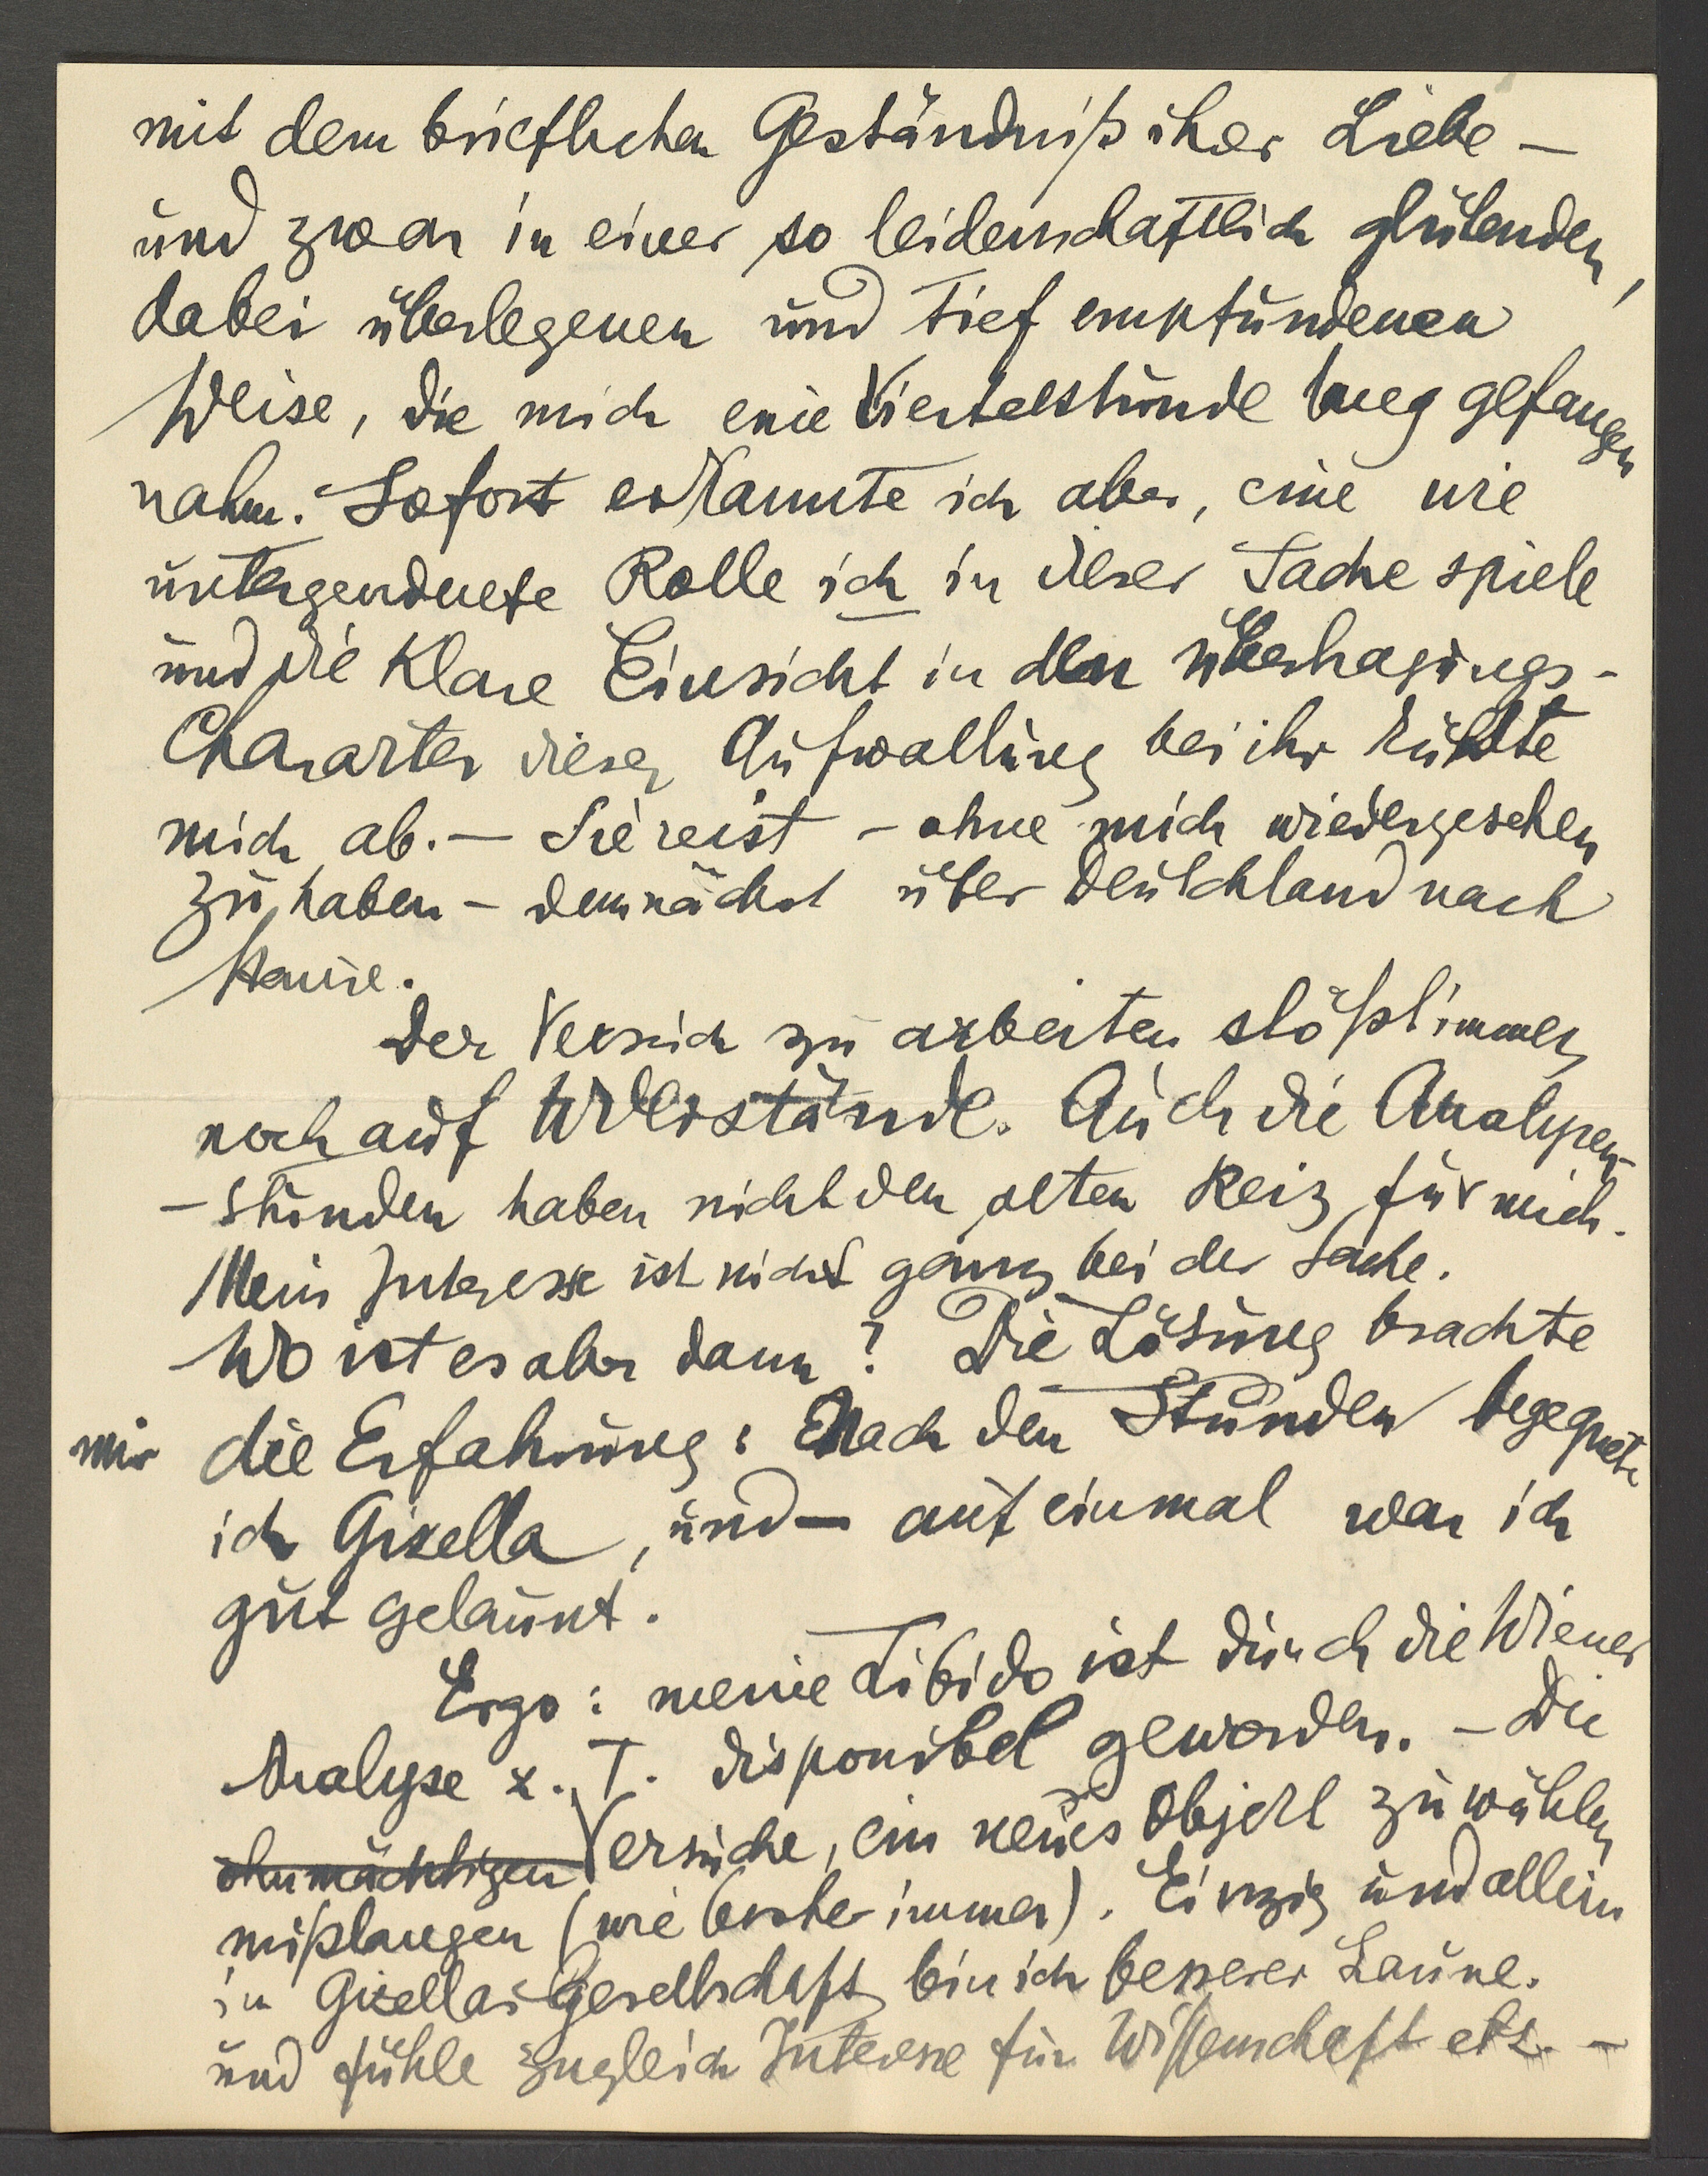 mit dem brieflichen Geständniß ihrer Liebe –
und zwar in einer so leidenschaftlich glühenden,
dabei überlegenen und tief empfundenen
Weise, die mich eine Viertelstunde lang gefangen
nahm. Sofort erkannte ich aber, eine wie
untergeordnete Rolle ich in dieser Sache spiele
und die klare Einsicht in den Übertragungs-
Charakter dieser Aufwallung bei ihr kühlte
mich ab. – Sie reist – ohne mich wiedergesehen
zu haben – demnächst über Deutschland nach
Hause.
Der Versuch zu arbeiten stößt immer
noch auf Widerstände. Auch die Analysen-
- stunden haben nicht den alten Reiz für mich.
Mein Interesse ist nicht ganz bei der Sache.
Wo ist es aber dann? Die Lösung brachte
mir die Erfahrung: Nach den Stunden begegnete
ich Gizella, und – auf einmal war ich
gut gelaunt.
Ergo: meine Libido ist durch die Wiener
Analyse z. T. disponibel geworden. – Die
ohnmächtigen Versuche, ein neues Objekt zu wählen
mißlangen (wie bisher immer). Einzig und allein
in Gizellas Gesellschaft bin ich besserer Laune.
und fühle zugleich Interesse für Wissenschaft etz. –